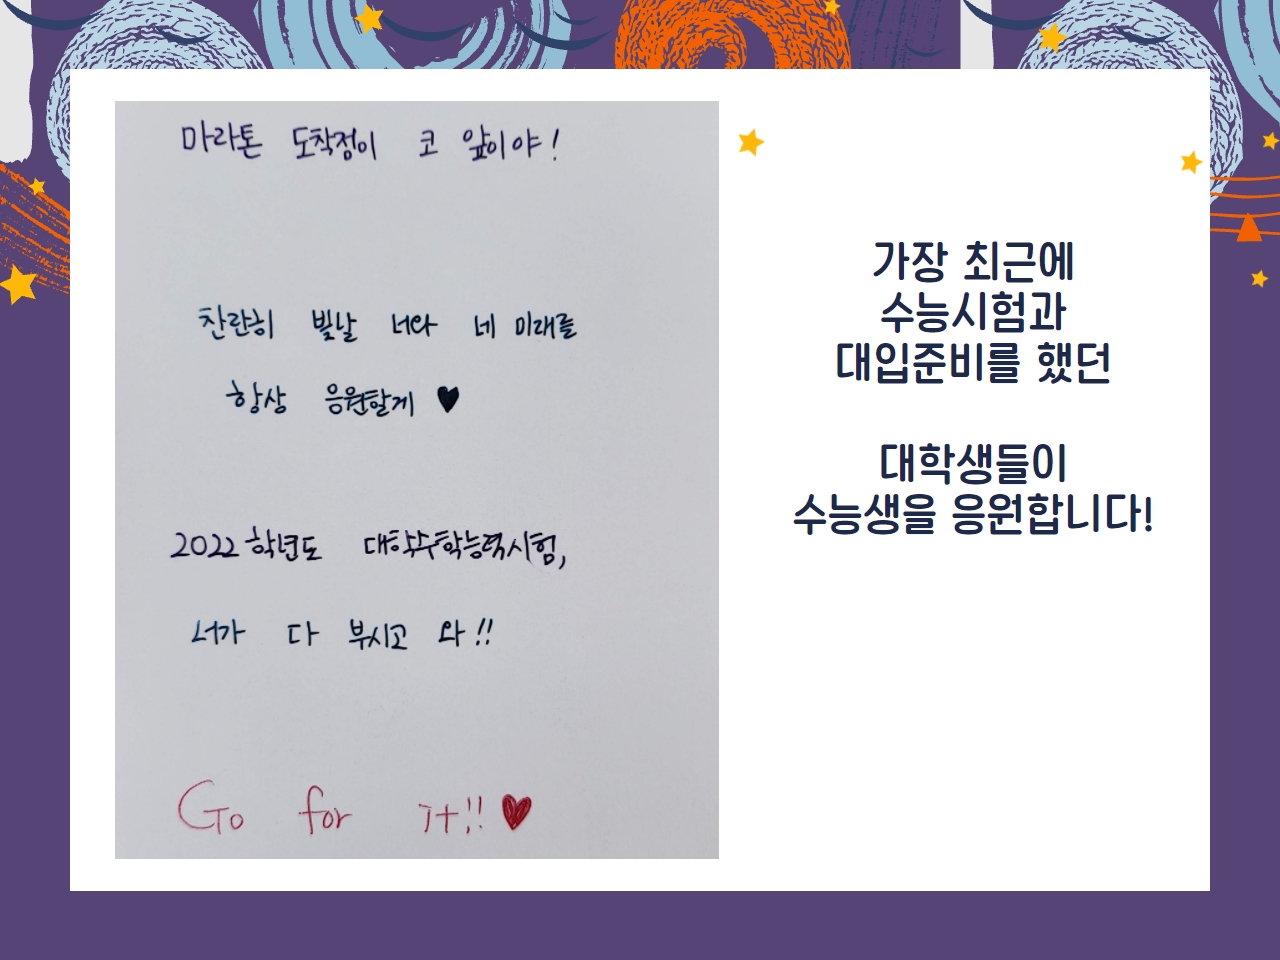 마라톤 도착점이 코 앞이야!
찬란히 빛날 너와 네 미래를
항상 응원할게 ♥
2022학년도 대학수학능력시험,
너가 다 부시고 와!!
Go for it!! ♥
가장 최근에
수능시험과
대입준비를 했던
대학생들이
수능생을 응원합니다!